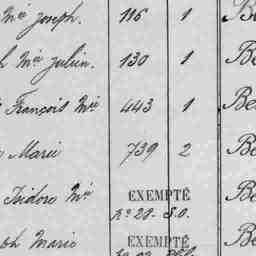 Mie Joseph. 115 1
Mie Julien. 130 1
François Mie 443 1 Be
Marie 739 2 Be
Isidore Mie EXEMPTÉ Be
No 20. S.O.
Marie EXEMPTÉ Be